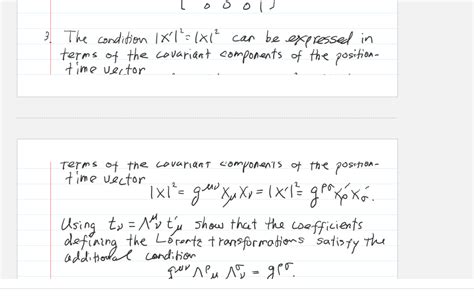 [ 0 0 0 1 ]
3. The condition |x'|² = |x|² can be expressed in
terms of the covariant components of the position-
time vector
terms of the covariant components of the position-
time vector
|x|² = g^{μν} x_μ x_ν = |x'|² = g^{ρσ} x'_ρ x'_σ.
Using t_ν = Λ^μ_ν t'_μ show that the coefficients
defining the Lorentz transformations satisfy the
additional condition
g^{μν} Λ^ρ_μ Λ^σ_ν = g^{ρσ}.